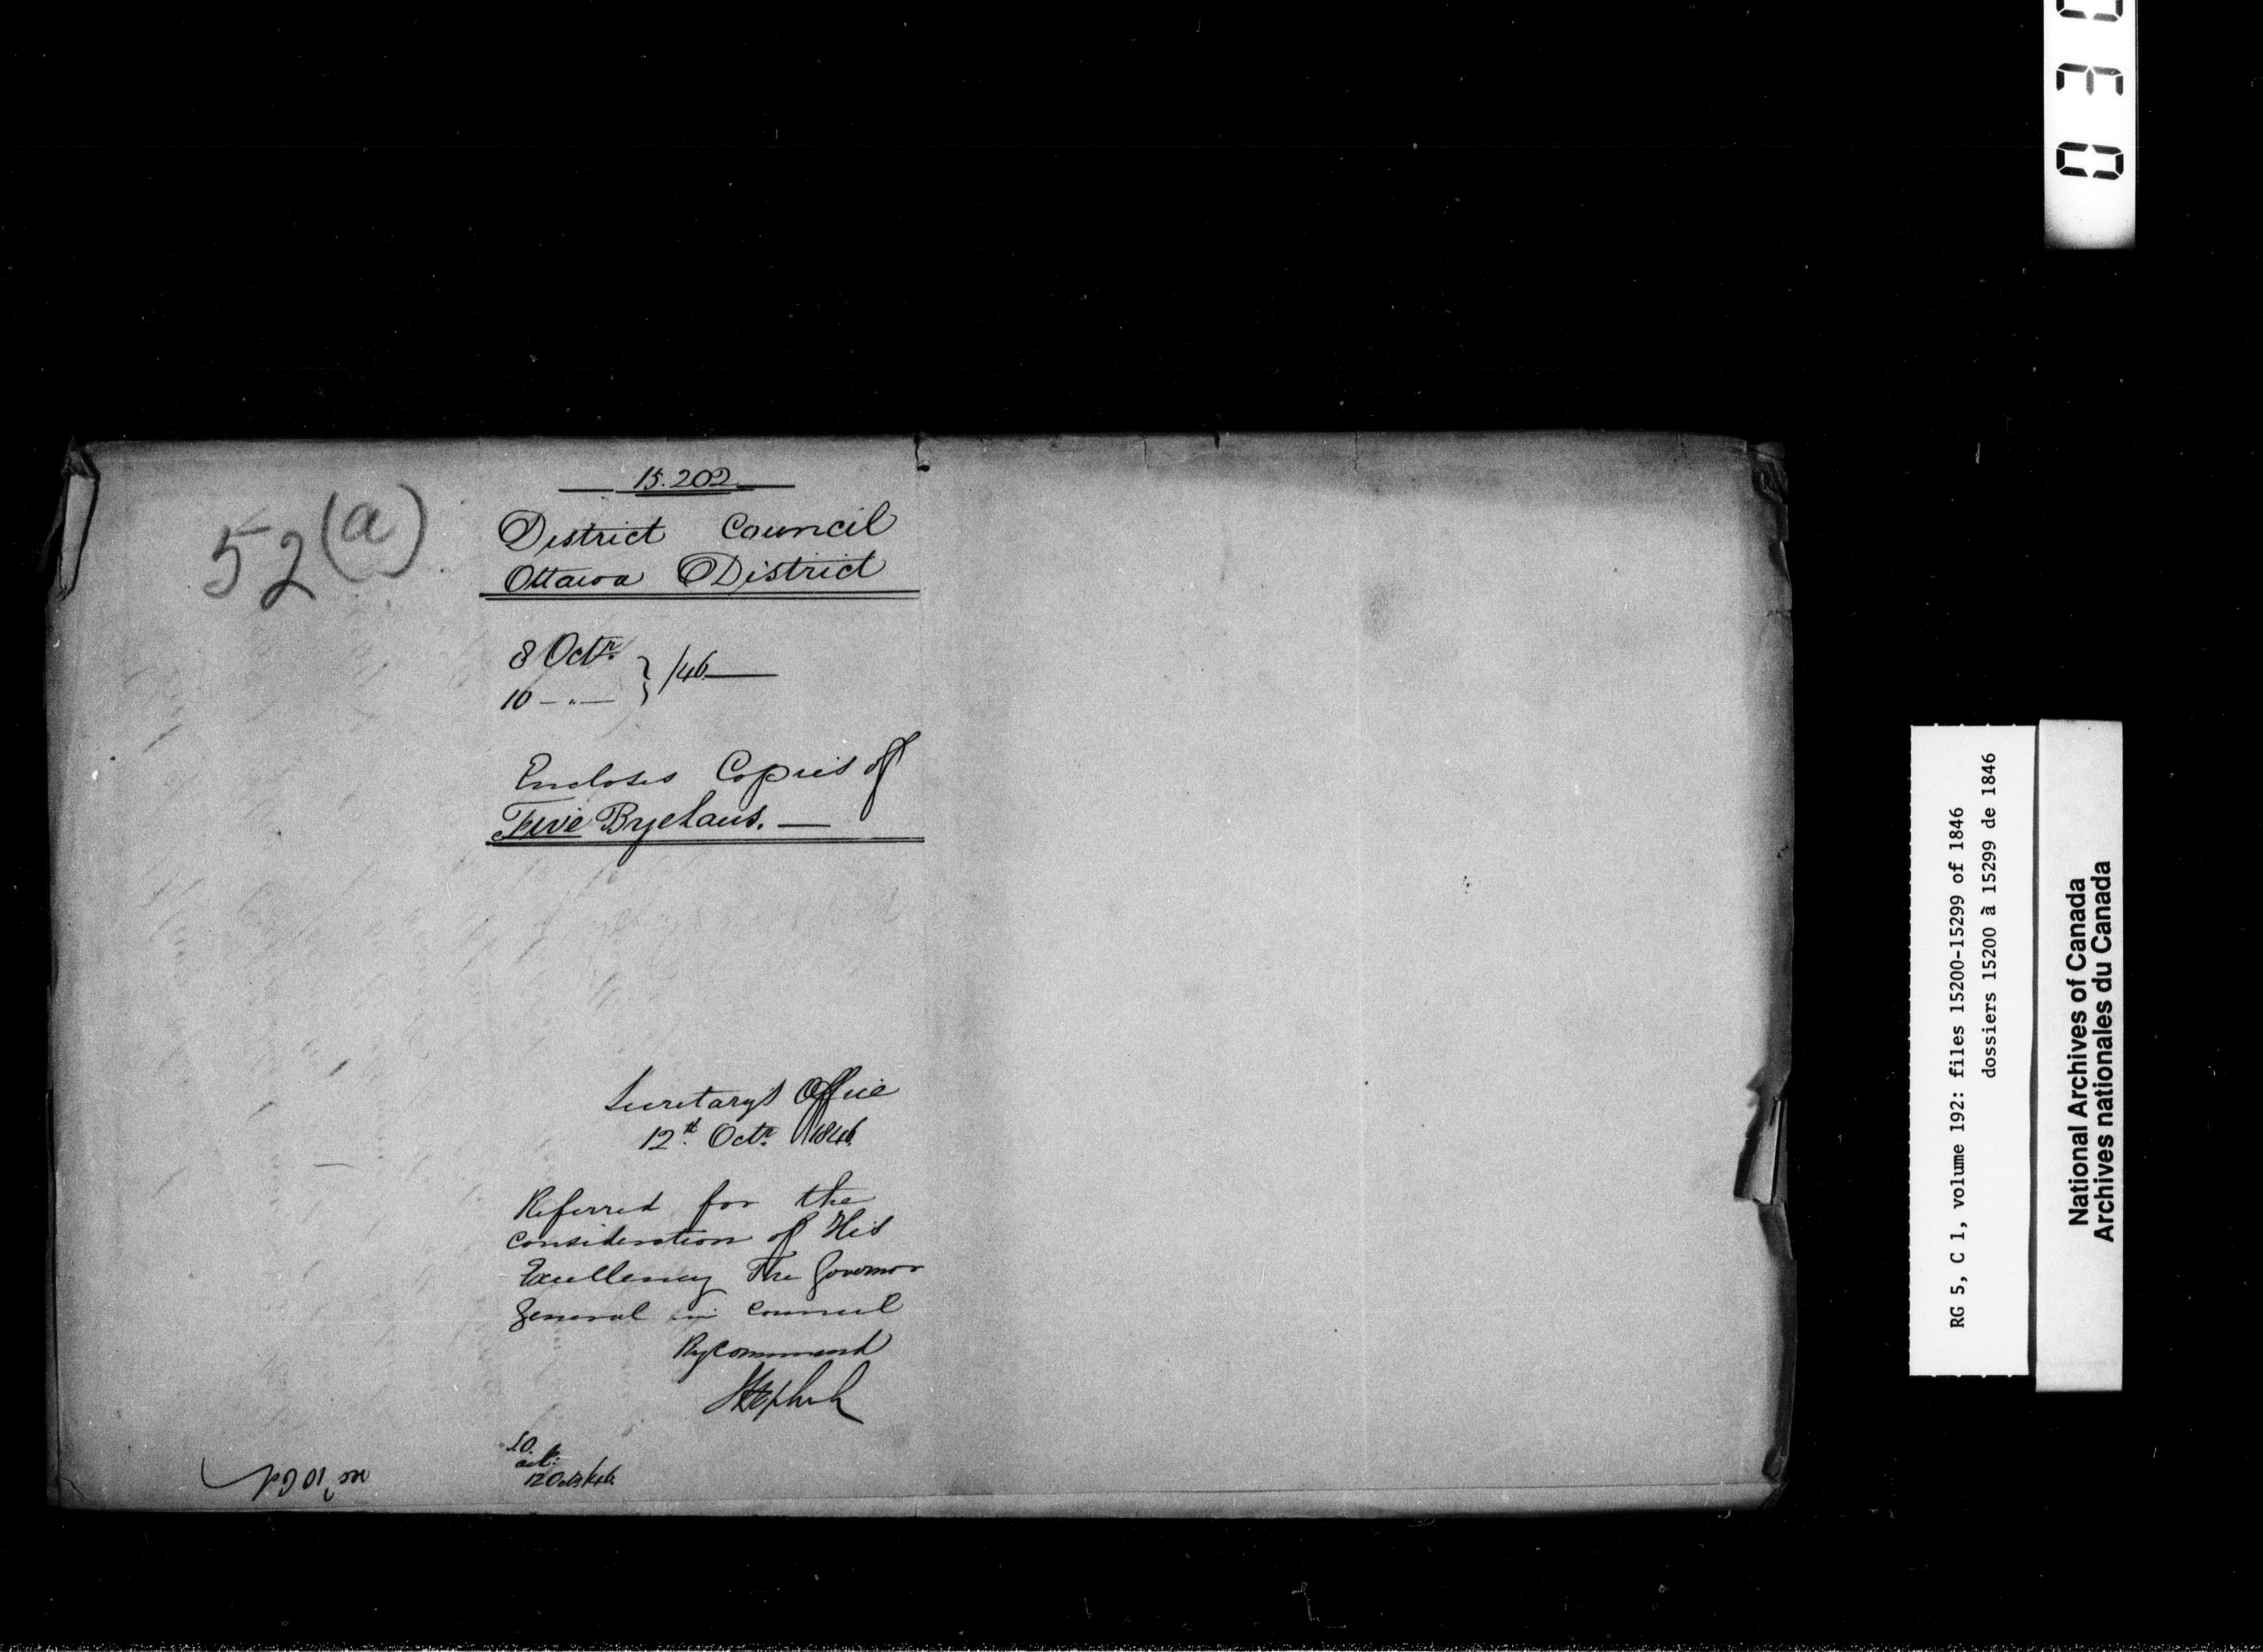 15.202
52 (a)
District Council
Ottawa District
8 Octr.
10 — " —
} /46
Encloses Copies of
Five Bye Laws. —
Secretary's Office
12th Octr. 1846
Referred for the
consideration of His
Excellency The Governor
General in Council
By Command
12 Octr /46
RG 5, C 1, volume 192: files 15200-15299 of 1846
dossiers 15200 à 15299 de 1846
National Archives of Canada
Archives nationales du Canada